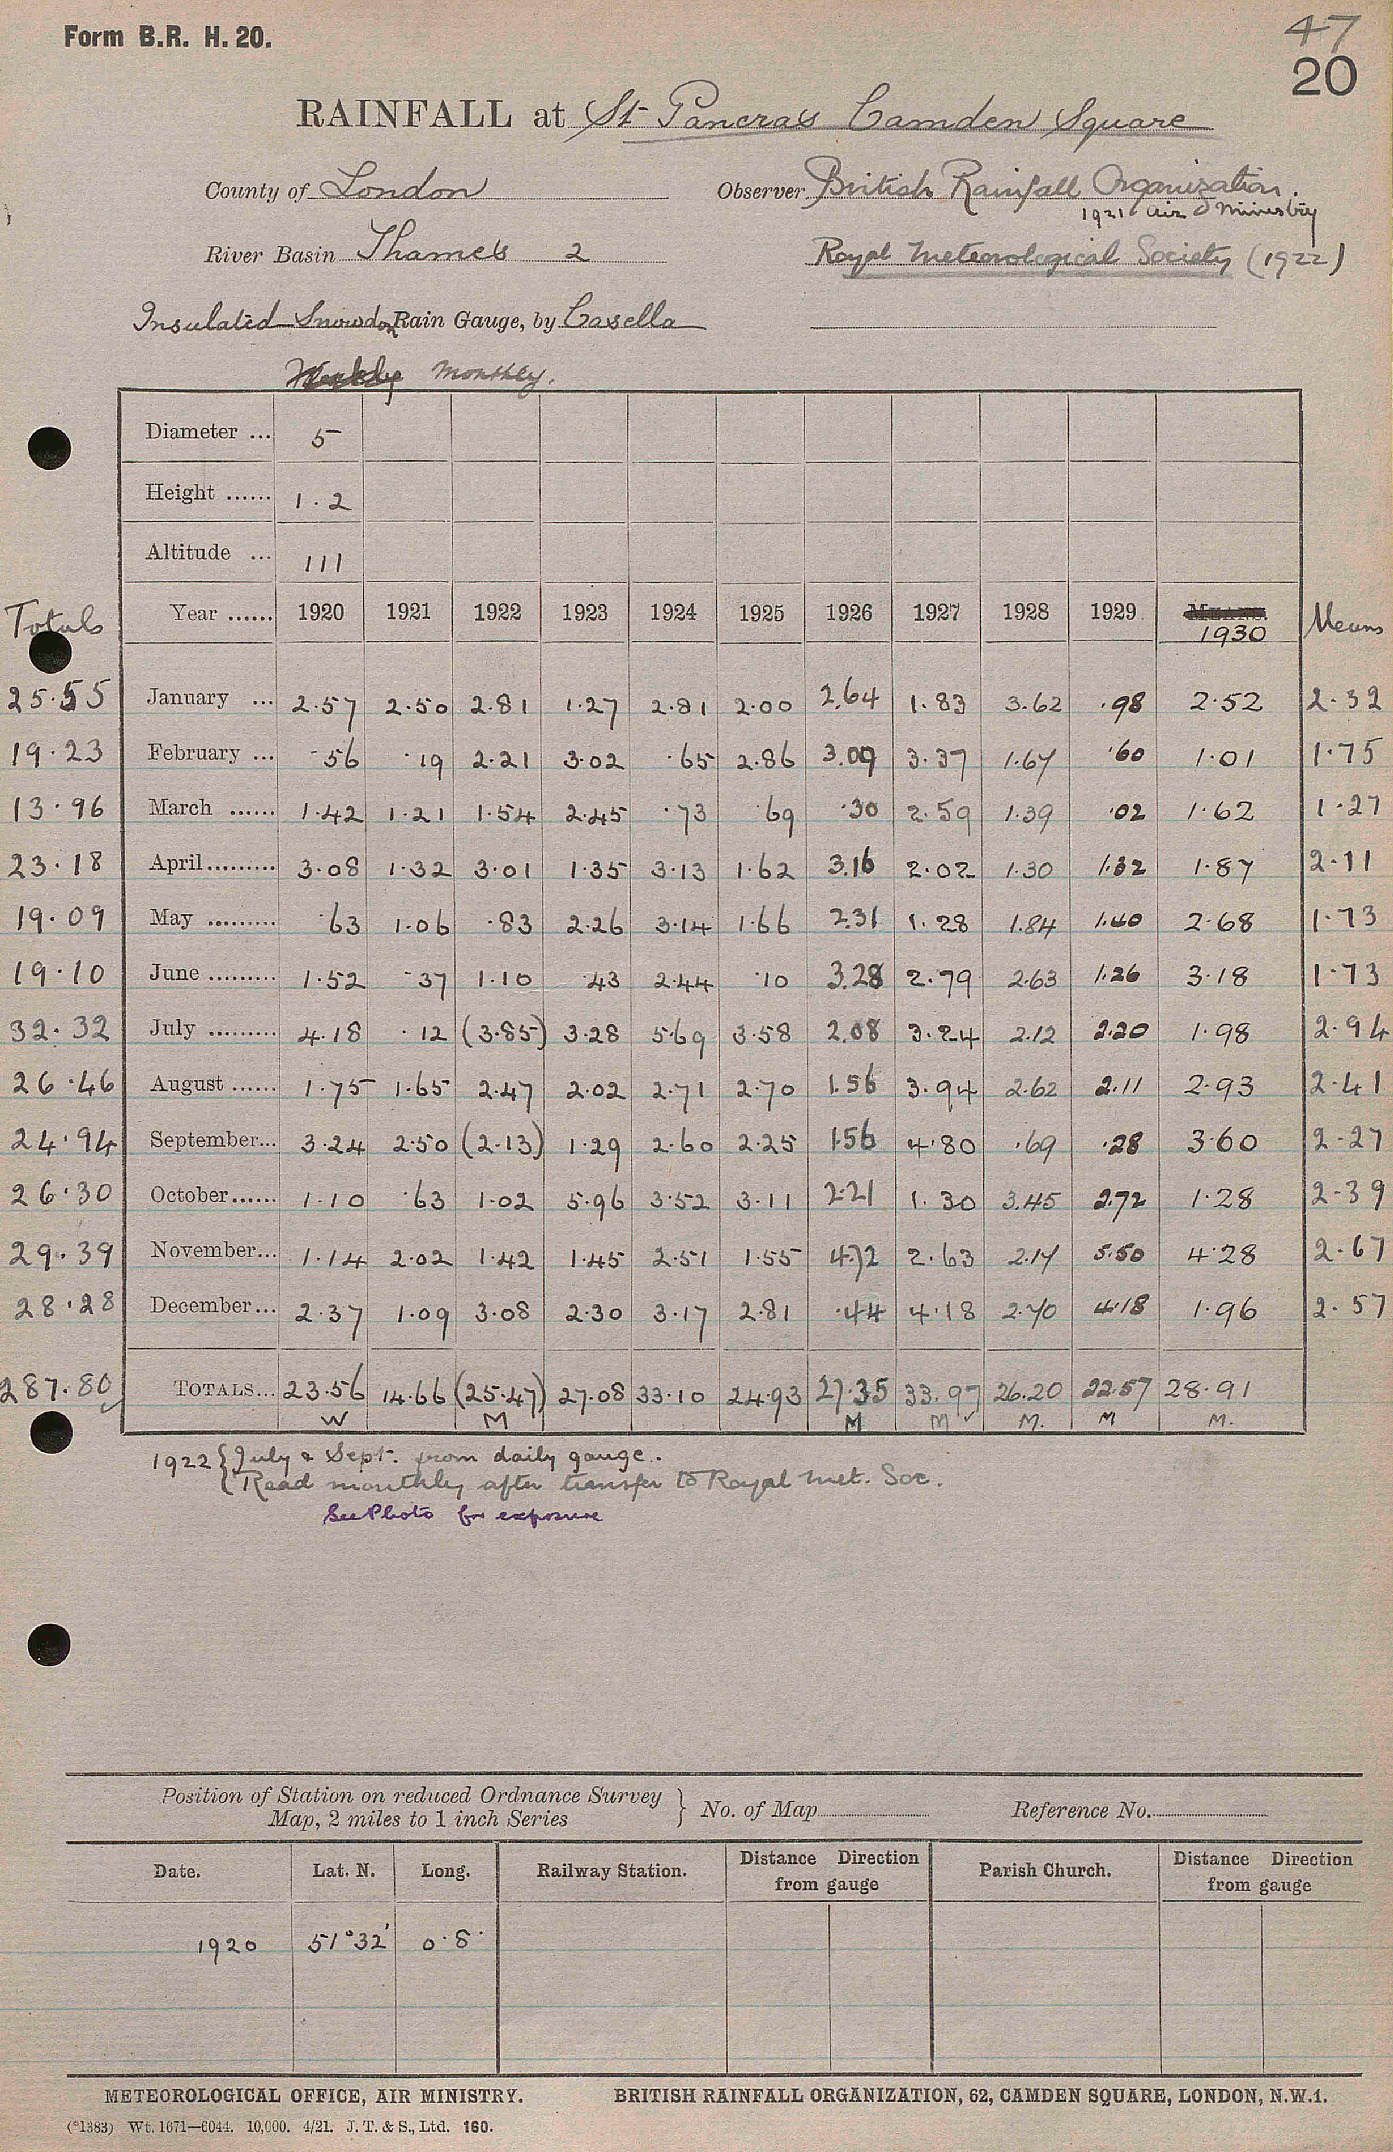 Form B.R. H. 20.
47
20
RAINFALL at St Pancras Camden Square
County of London Observer British Rainfall Organization.
1921 Air Ministry
River Basin Thames 2 Royal Meteorological Society (1922)
Insulated Snowdon Rain Gauge, by Casella
Weekly Monthly.
Diameter ... 5
Height ...... 1.2
Altitude ... 111
Totals Year ...... 1920 1921 1922 1923 1924 1925 1926 1927 1928 1929 MEANS. 1930 Means
25.55 January ... 2.57 2.50 2.81 1.27 2.81 2.00 2.64 1.83 3.62 .98 2.52 2.32
19.23 February ... .56 .19 2.21 3.02 .65 2.86 3.09 3.37 1.67 .60 1.01 1.75
13.96 March ...... 1.42 1.21 1.54 2.45 .73 .69 .30 2.59 1.39 .02 1.62 1.27
23.18 April ......... 3.08 1.32 3.01 1.35 3.13 1.62 3.16 2.02 1.30 1.32 1.87 2.11
19.09 May ......... .63 1.06 .83 2.26 3.14 1.66 2.31 1.28 1.84 1.40 2.68 1.73
19.10 June ......... 1.52 .37 1.10 .43 2.44 .10 3.28 2.79 2.63 1.26 3.18 1.73
32.32 July ......... 4.18 .12 (3.85) 3.28 5.69 3.58 2.08 3.24 2.12 2.20 1.98 2.94
26.46 August ...... 1.75 1.65 2.47 2.02 2.71 2.70 1.56 3.94 2.62 2.11 2.93 2.41
24.94 September... 3.24 2.50 (2.13) 1.29 2.60 2.25 1.56 4.80 .69 .28 3.60 2.27
26.30 October...... 1.10 .63 1.02 5.96 3.52 3.11 2.21 1.30 3.45 2.72 1.28 2.39
29.39 November... 1.14 2.02 1.42 1.45 2.51 1.55 4.72 2.63 2.17 5.50 4.28 2.67
28.28 December... 2.37 1.09 3.08 2.30 3.17 2.81 .44 4.18 2.70 4.18 1.96 2.57
287.80 TOTALS... 23.56 14.66 (25.47) 27.08 33.10 24.93 27.35 33.97 26.20 22.57 28.91
W M M M M. M M.
1922 { July & Sept. from daily gauge.
Read monthly after transfer to Royal Met. Soc.
See Photo for exposure
Position of Station on reduced Ordnance Survey
Map, 2 miles to 1 inch Series } No. of Map Reference No.
Date. Lat. N. Long. Railway Station. Distance Direction from gauge Parish Church. Distance Direction from gauge
1920 51°32' 0.8.
METEOROLOGICAL OFFICE, AIR MINISTRY. BRITISH RAINFALL ORGANIZATION, 62, CAMDEN SQUARE, LONDON, N.W.1.
(*1383) Wt. 1671—6044. 10,000. 4/21. J. T. & S., Ltd. 160.